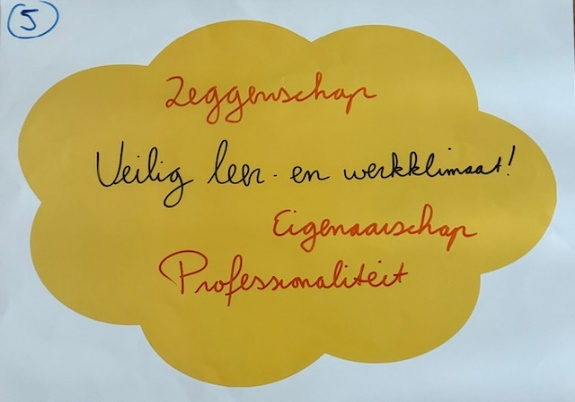 5
Zeggenschap
Veilig leer- en werkklimaat!
Eigenaarschap
Professionaliteit